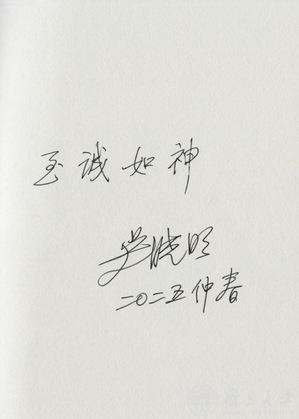 至诚如神
吴晓明
二〇二五仲春